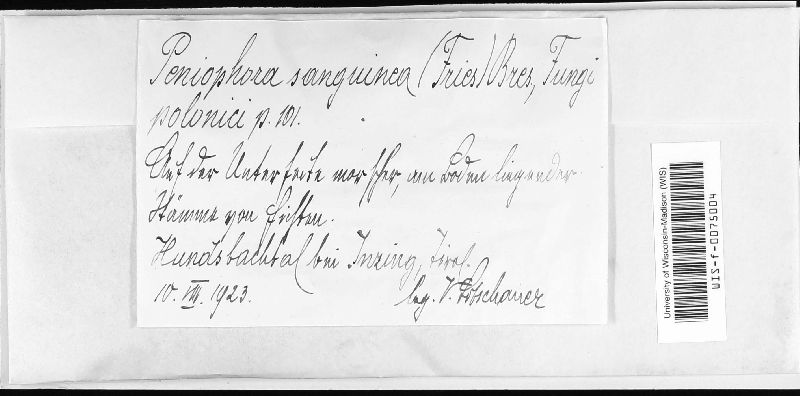 Peniophora sanguinea (Fries) Bres, Fungi
polonici p. 101.
Auf der Unterseite morscher, am Boden liegender
Stämme von Fichten.
Hundsbachtal bei Inzing, Tirol.
10. VIII. 1923.
leg. V. Litschauer
University of Wisconsin-Madison (WIS)
WIS-f-0075004